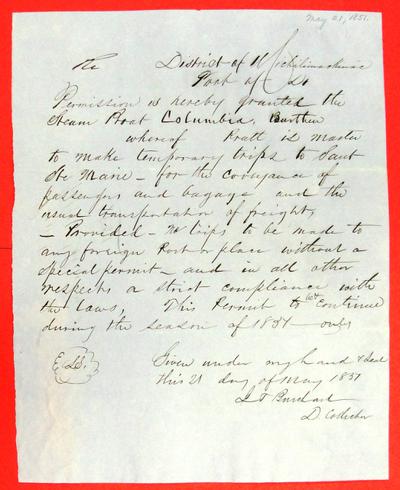 May 21, 1851.
The District of Michilimackinac
Port of do
Permission is hereby granted the
Steam Boat Columbia, Burthen
whereof Pratt is master
to make temporary trips to Saut
Ste Marie - for the conveyance of
passengers and bagage and the
usual transportation of freight,
- Provided - no trips to be made to
any foreign Port or place without a
special permit - and in all other
respects a strict compliance with
the laws, This Permit to continue
during the season of 1851 only
Given under my hand & Seal
this 21 day of May 1851
D. Collector